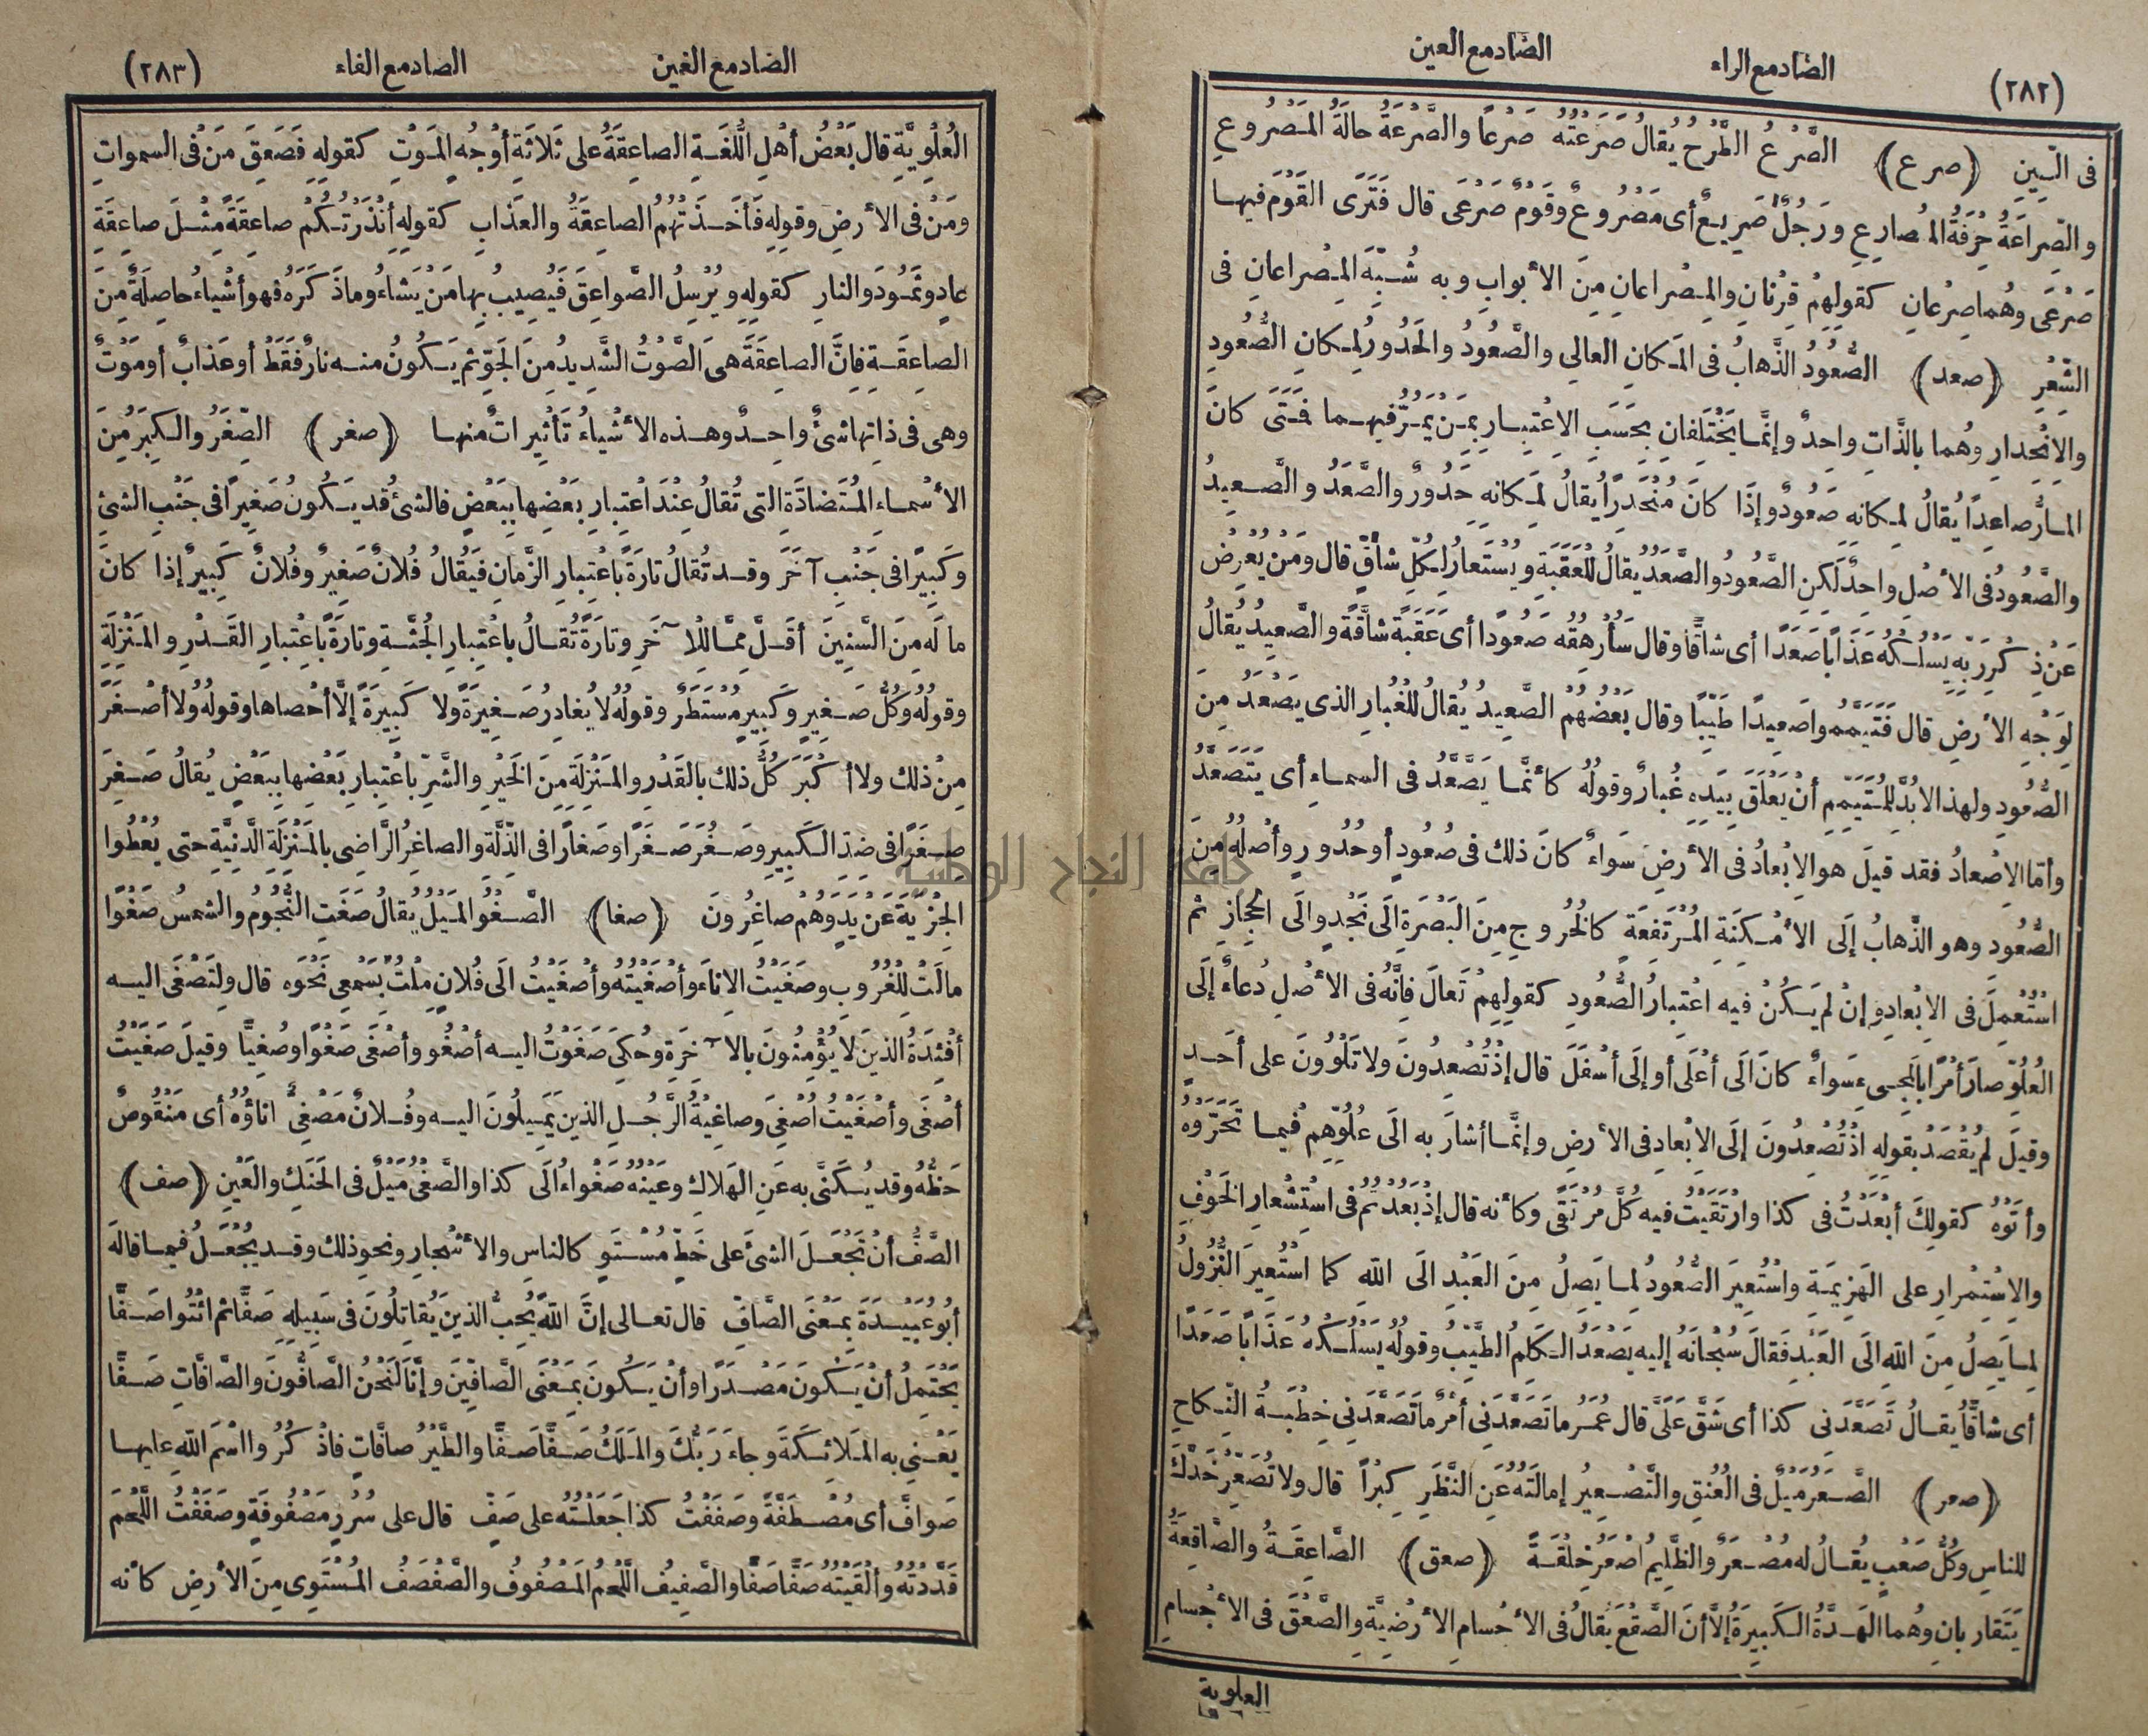 (٢٨٢) الصّاد مع الراء الصّاد مع العين
فى السِّينِ (صرع) الصَّرْعُ الطَّرْحُ يُقالُ صَرَعْتُهُ صَرْعاً والصَّرْعَةُ حالَةُ المَصْرُوعِ
والصِّراعَةُ حِرْفَةُ المُصارِعِ ورَجُلٌ صَرِيعٌ أى مَصْرُوعٌ وقَوْمٌ صَرْعَى قال فَتَرَى القَوْمَ فيها
صَرْعَى وهُما صِرْعانِ كقولِهِمْ قِرْنانِ والمِصْراعانِ مِنَ الأبوابِ وبه شُبِّهَ المِصْراعانِ فى
الشِّعْرِ (صعد) الصُّعُودُ الذَّهابُ فى المَكانِ العالِى والصَّعُودُ والحَدُورُ لِمَكانِ الصُّعُودِ
والانْحِدارِ وهُما بالذَّاتِ واحِدٌ وإنَّما يَخْتَلِفانِ بِحَسَبِ الاعْتِبارِ بِمَنْ يَمُرُّ فيهما فَمَتَى كانَ
المارُّ صاعِدًا يُقالُ لِمَكانِه صَعُودٌ وإذَا كانَ مُنْحَدِرًا يُقالُ لِمَكانِه حَدُورٌ والصَّعَدُ والصَّعِيدُ
والصَّعُودُ فى الأصْلِ واحِدٌ لَكِنِ الصَّعُودُ والصَّعَدُ يُقالُ لِلْعَقَبَةِ ويُسْتَعارُ لِكُلِّ شاقٍّ قال ومَنْ يُعْرِضْ
عَنْ ذِكْرِ رَبِّهِ يَسْلُكْهُ عَذَابًا صَعَدًا أى شاقًّا وقال سَأُرْهِقُهُ صَعُودًا أى عَقَبَةً شاقَّةً والصَّعِيدُ يُقالُ
لِوَجْهِ الأرضِ قال فَتَيَمَّمُوا صَعِيدًا طَيِّبًا وقال بَعْضُهُمْ الصَّعِيدُ يُقالُ لِلْغُبارِ الذى يَصْعَدُ مِنَ
الصُّعُودِ ولهذا لابُدَّ لِلْمُتَيَمِّمِ أنْ يَعْلَقَ بِيَدِهِ غُبارٌ وقولُهُ كأنَّما يَصَّعَّدُ فى السماءِ أى يَتَصَعَّدُ
وأمّا الإصْعادُ فقد قيلَ هو الإبْعادُ فى الأرضِ سَواءٌ كانَ ذلك فى صُعُودٍ أو حُدُورٍ وأصْلُهُ مِنَ
الصُّعُودِ وهو الذَّهابُ إلَى الأمْكِنَةِ المُرْتَفِعَةِ كالخُرُوجِ مِنَ البَصْرَةِ إلَى نَجْدٍ وإلَى الحِجازِ ثم
اسْتُعْمِلَ فى الإبْعادِ وإنْ لم يَكُنْ فيه اعْتِبارُ الصُّعُودِ كقولِهِمْ تَعالَ فإنَّهُ فى الأصْلِ دُعاءٌ إلَى
العُلُوِّ صارَ أمْرًا بالمَجِىءِ سَواءٌ كانَ الَى أعْلَى أو إلَى أسْفَلَ قال إذْ تُصْعِدُونَ ولا تَلْوُونَ على أحَدٍ
وقيلَ لم يُقْصَدْ بقولِهِ إذْ تُصْعِدُونَ إلَى الإبْعادِ فى الأرضِ وإنَّما أشارَ به الَى عُلُوِّهِمْ فيما تَحَرَّوْهُ
وأتَوْهُ كقولِكَ أبْعَدْتُ فى كذا وارْتَقَيْتُ فيه كُلَّ مُرْتَقًى وكأنه قال إذْ بَعُدْتُمْ فى اسْتِشْعارِ الخَوْفِ
والاسْتِمْرارِ على الهَزِيمَةِ واسْتُعِيرَ الصُّعُودُ لِما يَصِلُ مِنَ العَبْدِ الَى اللهِ كما اسْتُعِيرَ النُّزُولُ
لِما يَصِلُ مِنَ اللهِ الَى العَبْدِ فَقالَ سُبْحانَهُ إليه يَصْعَدُ الكَلِمُ الطَّيِّبُ وقولُهُ يَسْلُكْهُ عَذَابًا صَعَدًا
أى شاقًّا يقالُ تَصَعَّدَنِى كذا أى شَقَّ عَلَىَّ قال عُمَرُ ما تَصَعَّدَنِى أمْرٌ ما تَصَعَّدَنِى خِطْبَةُ النِّكاحِ
(صعر) الصَّعَرُ مَيْلٌ فى العُنُقِ والتَّصْعِيرُ إمالَتُهُ عَنِ النَّظَرِ كِبْراً قال ولا تُصَعِّرْ خَدَّكَ
للناسِ وكُلُّ صَعْبٍ يُقالُ له مُصْعَرٌ والظَّلِيمُ أصْعَرُ خِلْقَةً (صعق) الصَّاعِقَةُ والصَّاقِعَةُ
يَتَقارَبانِ وهُما الهَدَّةُ الكَبِيرَةُ إلَّا أنَّ الصَّقْعَ يُقالُ فى الأجْسامِ الأرْضِيَّةِ والصَّعْقَ فى الأجْسامِ
العلوية
الصاد مع الغين الصاد مع الفاء (٢٨٣)
العُلْوِيَّةِ قال بَعْضُ أهْلِ اللُّغَةِ الصاعِقَةُ على ثَلاثَةِ أوْجُهٍ المَوْتِ كقولِهِ فَصَعِقَ مَنْ فى السموات
ومَنْ فى الأرضِ وقولِهِ فَأخَذَتْهُمُ الصاعِقَةُ والعَذَابِ كقولِهِ أنْذَرْتُكُمْ صاعِقَةً مِثْلَ صاعِقَةِ
عادٍ وثَمُودَ والنارِ كقولِهِ ويُرْسِلُ الصَّواعِقَ فَيُصِيبُ بِها مَنْ يَشَاءُ وماذَكَرَهُ فهو أشْياءُ حاصِلَةٌ مِنَ
الصاعِقَةِ فإنَّ الصاعِقَةَ هِىَ الصَّوْتُ الشَّدِيدُ مِنَ الجَوِّ ثم يَكُونُ منه نارٌ فَقَطْ أو عَذابٌ أو مَوْتٌ
وهى فى ذاتِها شىءٌ واحِدٌ وهذه الأشْياءُ تَأثِيراتٌ منها (صغر) الصِّغَرُ والكِبَرُ مِنَ
الأسْماءِ المُتَضادَّةِ التى تُقالُ عِنْدَ اعْتِبارِ بَعْضِها بِبَعْضٍ فالشىْءُ قد يَكُونُ صَغِيرًا فى جَنْبِ الشىْءِ
وكَبِيرًا فى جَنْبِ آخَرَ وقد تُقالُ تارَةً باعْتِبارِ الزَّمانِ فَيُقالُ فُلانٌ صَغِيرٌ وفُلانٌ كَبِيرٌ إذا كانَ
ما لَه مِنَ السِّنِينَ أقَلَّ مِمَّا لِلْآخَرِ وتارَةً تُقالُ باعْتِبارِ الجُثَّةِ وتارَةً باعْتِبارِ القَدْرِ والمَنْزِلَةِ
وقولُهُ وكُلُّ صَغِيرٍ وكَبِيرٍ مُسْتَطَرٌ وقولُهُ لا يُغادِرُ صَغِيرَةً ولا كَبِيرَةً إلَّا أحْصاها وقولُهُ ولا أصْغَرَ
مِنْ ذلك ولا أكْبَرَ كُلُّ ذلك بالقَدْرِ والمَنْزِلَةِ مِنَ الخَيْرِ والشَّرِّ باعْتِبارِ بَعْضِها بِبَعْضٍ يُقالُ صَغِرَ
صِغَرًا فى ضِدِّ الكَبِيرِ وصَغُرَ صَغَرًا وصَغارًا فى الذِّلَّةِ والصاغِرُ الرَّاضِى بالمَنْزِلَةِ الدَّنِيَّةِ حتى يُعْطُوا
الجِزْيَةَ عَنْ يَدٍ وَهُمْ صاغِرُونَ (صغا) الصَّغْوُ المَيْلُ يُقالُ صَغَتِ النُّجُومُ والشمسُ صَغْوًا
مالَتْ لِلْغُرُوبِ وصَغَيْتُ الإناءَ وأصْغَيْتُهُ وأصْغَيْتُ الَى فُلانٍ مِلْتُ بِسَمْعِى نَحْوَه قال ولِتَصْغَى اليه
أفْئِدَةُ الذينَ لا يُؤْمِنُونَ بالآخِرَةِ وحُكِىَ صَغَوْتُ اليه أصْغُو وأصْغَى صَغْوًا وصُغِيًّا وقيلَ صَغَيْتُ
أصْغَى وأصْغَيْتُ أُصْغِى وصاغِيَةُ الرَّجُلِ الذينَ يَمِيلُونَ اليه وفُلانٌ مُصْغًى اناؤُهُ أى مَنْقُوصٌ
حَظُّهُ وقد يُكَنَّى به عَنِ الهَلاكِ وعَيْنُهُ صَغْواءُ الَى كذا والصَّغْىُ مَيْلٌ فى الحَنَكِ والعَيْنِ (صف)
الصَّفُّ أنْ تَجْعَلَ الشىْءَ على خَطٍّ مُسْتَوٍ كالناسِ والأشْجارِ ونحوِ ذلك وقد يُجْعَلُ فيما قالَه
أبُو عُبَيْدَةَ بِمَعْنَى الصَّافِّ قال تعالى إنَّ اللهَ يُحِبُّ الذينَ يُقاتِلُونَ فى سَبِيلِهِ صَفًّا ثم ائْتُوا صَفًّا
يَحْتَمِلُ أنْ يَكُونَ مَصْدَرًا وأنْ يَكُونَ بِمَعْنَى الصَّافِّينَ وإنَّا لَنَحْنُ الصَّافُّونَ والصَّافَّاتِ صَفًّا
يَعْنِى به المَلائِكَةَ وجاءَ رَبُّكَ والمَلَكُ صَفًّا صَفًّا والطَّيْرُ صافَّاتٍ فاذْكُرُوا اسْمَ اللهِ عليها
صَوافَّ أى مُصْطَفَّةً وصَفَفْتُ كذا جَعَلْتُهُ على صَفٍّ قال على سُرُرٍ مَصْفُوفَةٍ وصَفَفْتُ اللَّحْمَ
قَدَّدْتُهُ وألْقَيْتُهُ صَفًّا صَفًّا والصَّفِيفُ اللَّحْمُ المَصْفُوفُ والصَّفْصَفُ المُسْتَوِى مِنَ الأرضِ كأنه
جامعة النجاح الوطنية